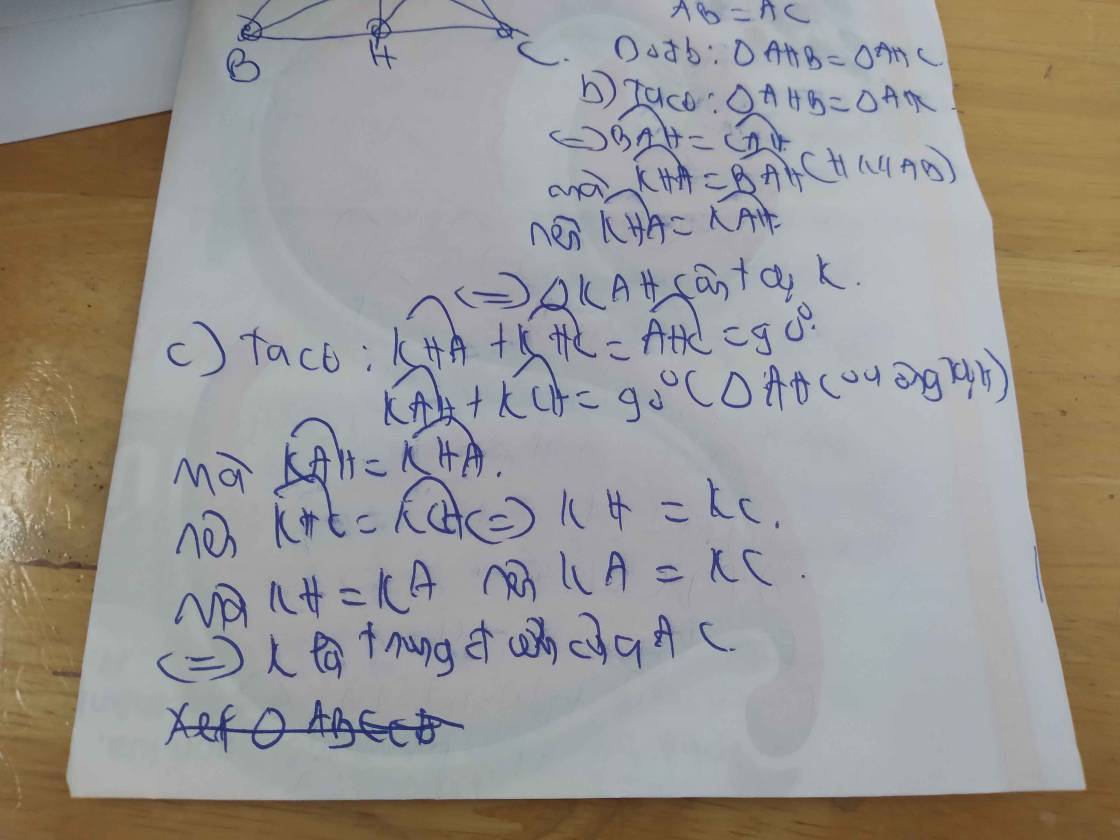 B H C.
AB = AC
Do đó: ΔAHB = ΔAHC
b) Ta có: ΔAHB = ΔAHC
(=) BAH = CAH
mà KHA = BAH (HK // AB)
nên KHA = KAH
(=) ΔKAH cân tại K.
c) Ta có: KHA + KHC = AHC = 90°
KAH + KCH = 90° (ΔAHC vuông tại H)
mà KAH = KHA.
nên KHC = KCH (=) KH = KC.
mà KH = KA nên KA = KC.
(=) K là trung điểm của AC.
Xét ΔABC có